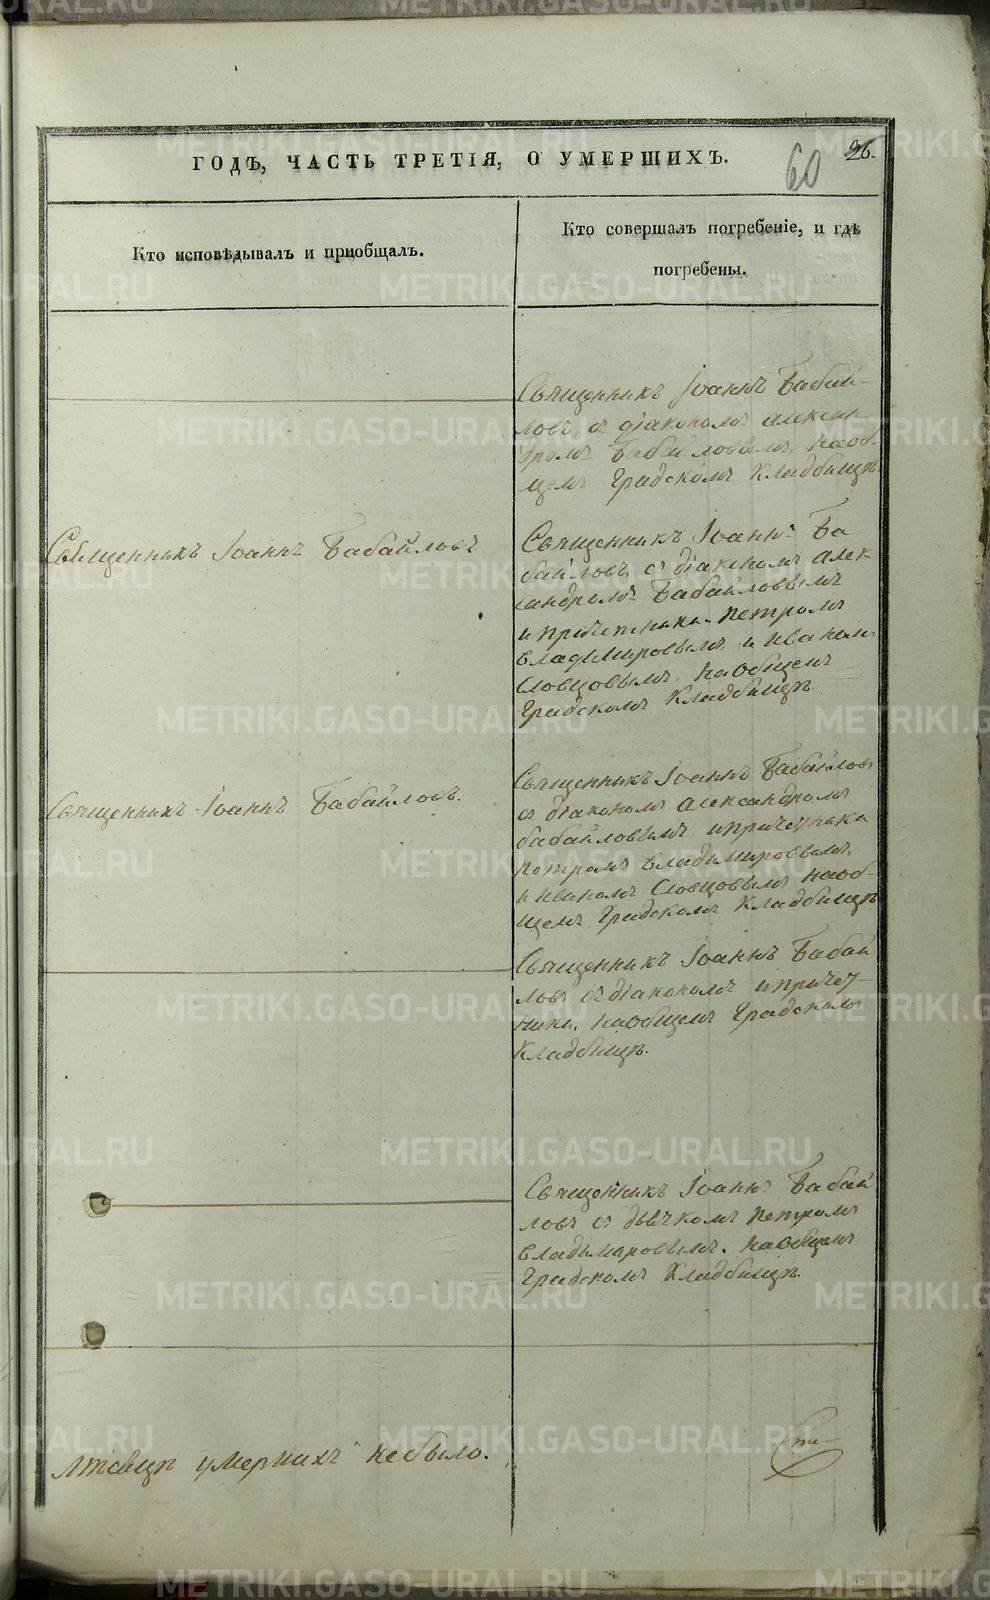 ГОДЪ, ЧАСТЬ ТРЕТІЯ, О УМЕРШИХЪ.
60
26.
Кто исповѣдывалъ и пріобщалъ.
Кто совершалъ погребеніе, и гдѣ
погребены.
Священникъ Іоаннъ Бабай-
ловъ съ діакономъ Алексан-
дромъ Бабайловымъ, на об-
щемъ Градскомъ Кладбищѣ
Священникъ Іоаннъ Бабайловъ
Священникъ Іоаннъ Ба
байловъ, съ діакономъ Алек
сандромъ Бабайловымъ
и причетники Петромъ
Владимировымъ и Иваномъ
Словцовымъ, на Общемъ
Градскомъ Кладбищѣ
Священникъ Іоаннъ Бабайловъ.
Священникъ Іоаннъ Бабайловъ
съ діакономъ Александромъ
бабайловымъ и причетники
Петромъ Владимировымъ,
и Иваномъ Словцовымъ на об-
щемъ Градскомъ Кладбищѣ
Священникъ Іоаннъ Бабай
ловъ съ діакономъ и причет
ники, на Общемъ Градскомъ
Кладбищѣ.
Священникъ Іоаннъ Бабай
ловъ съ дьячкомъ Петромъ
Владимировымъ, на Общемъ
Градскомъ Кладбищѣ.
умерших не было.
METRIKI.GASO-URAL.RU